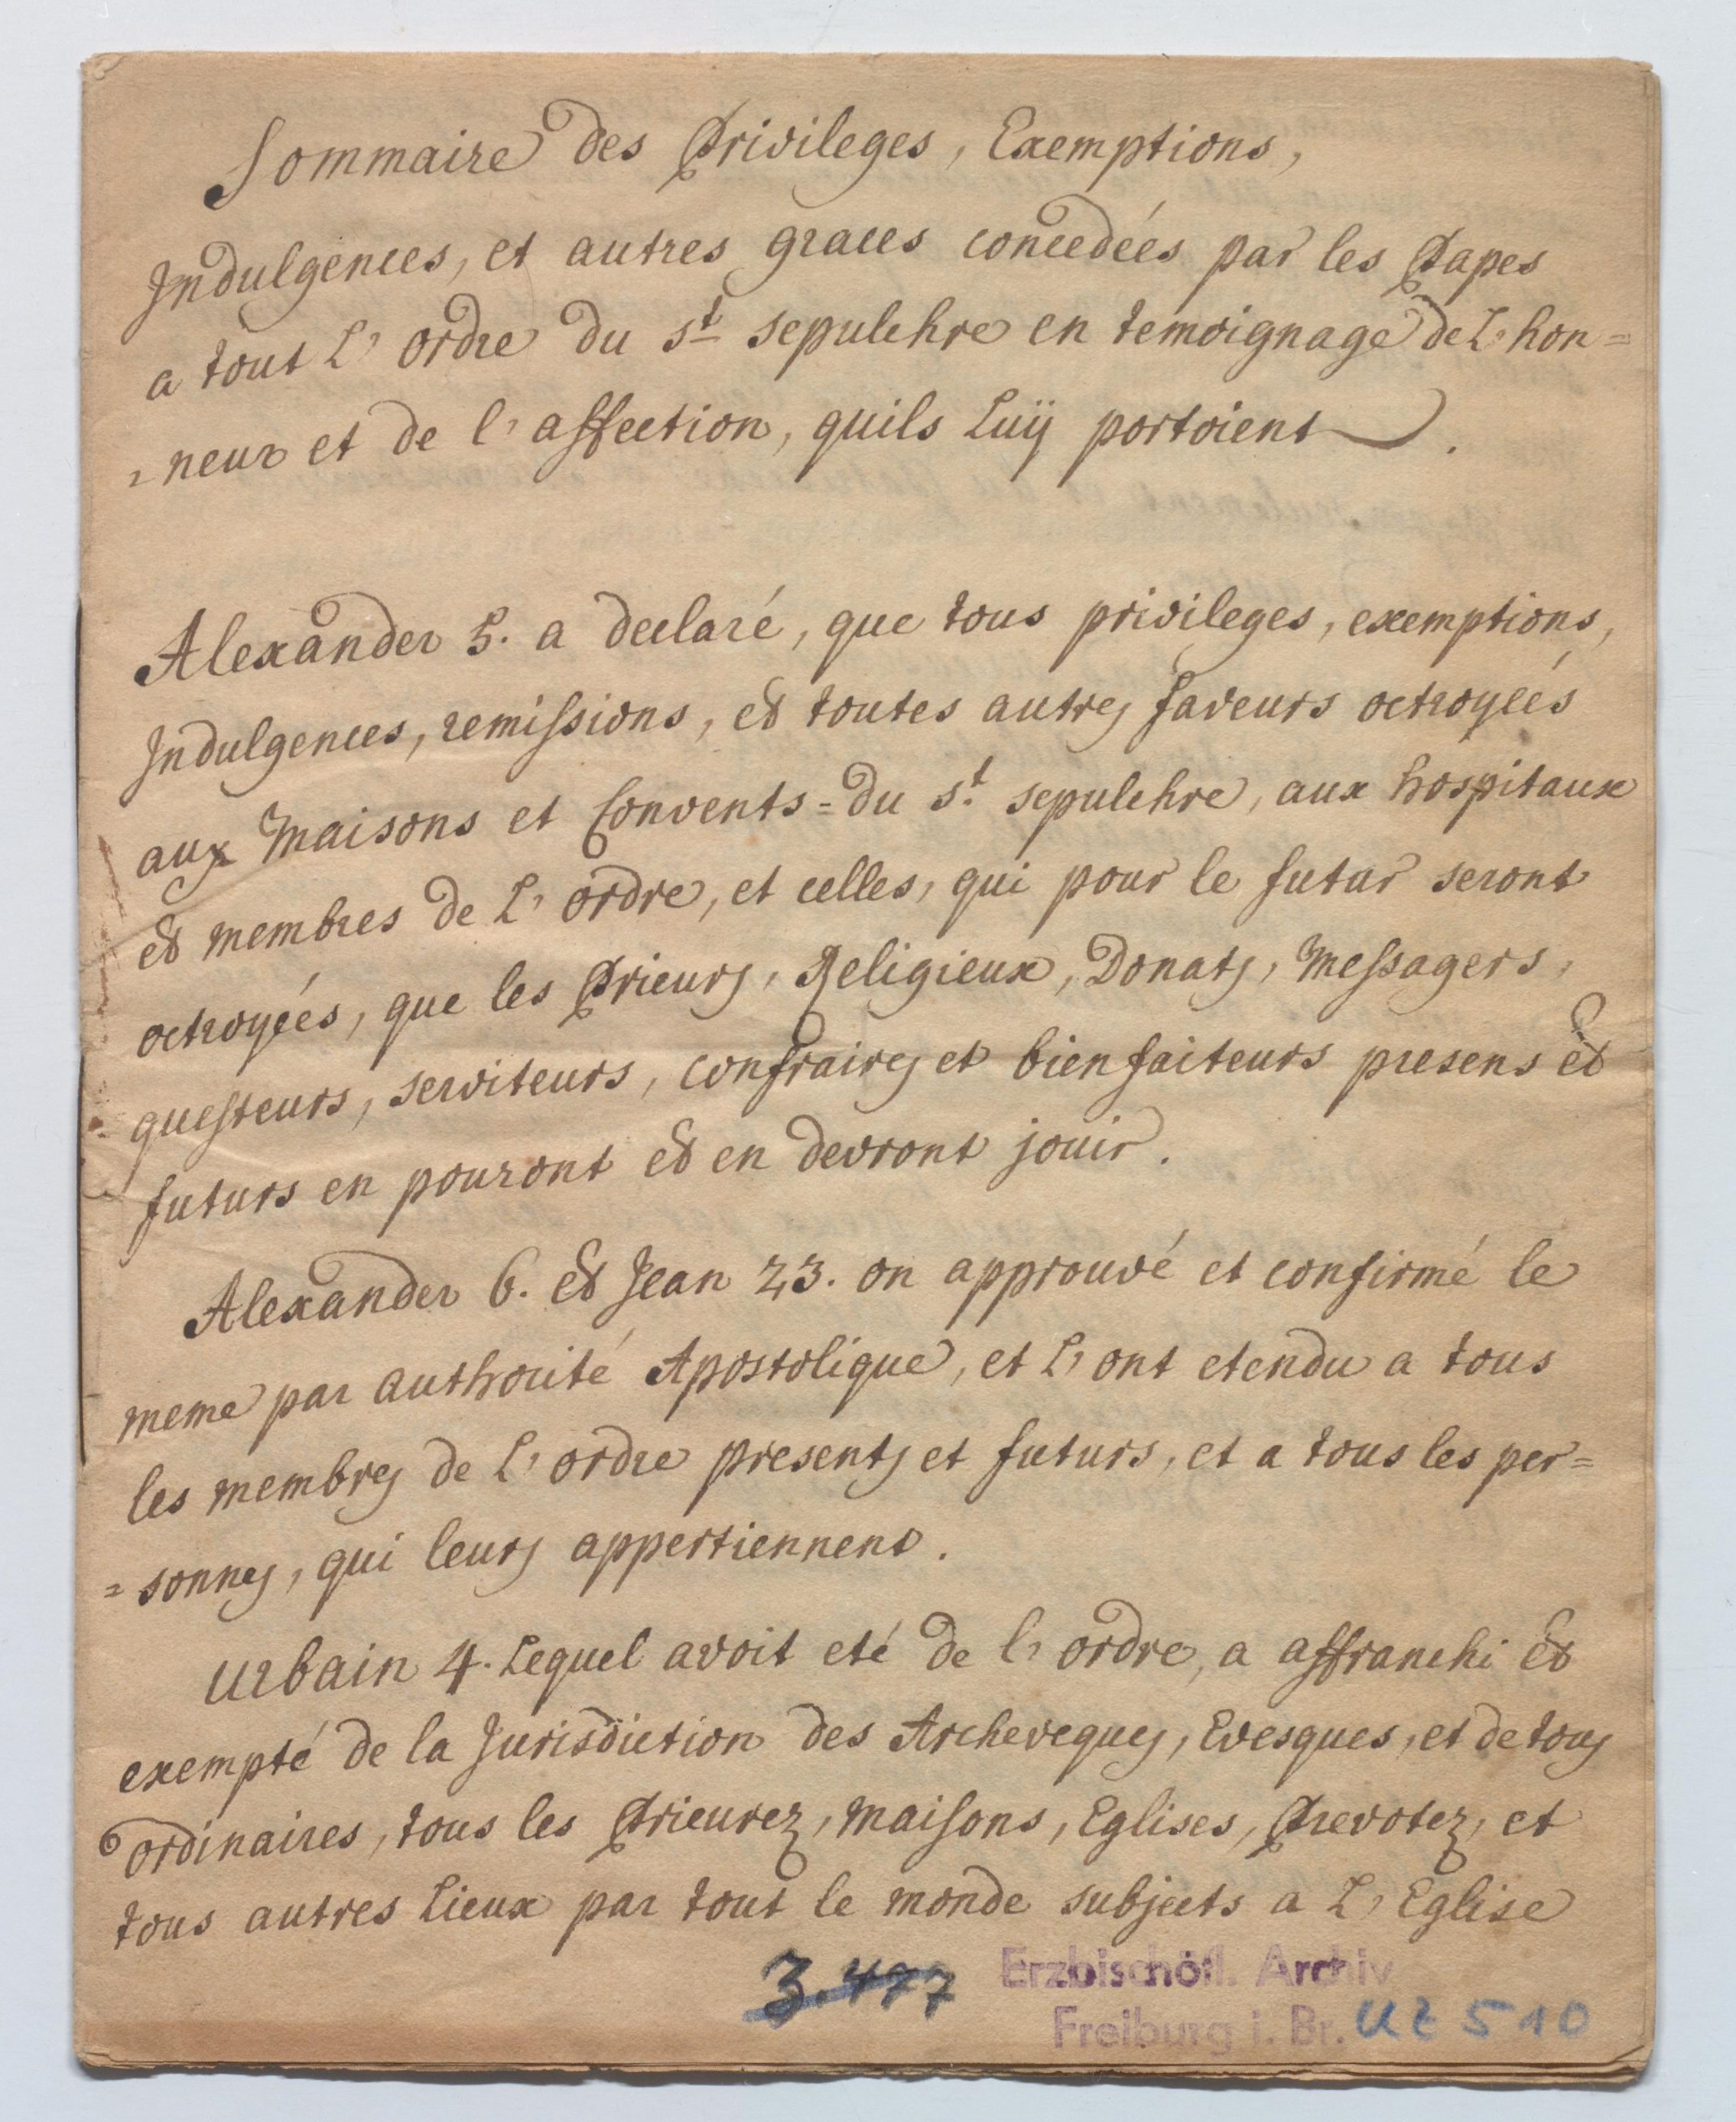 Sommaire des Privileges, Exemptions,
Indulgences, et autres graces concedées par les Papes
a tout L'ordre du st sepulchre en temoignage de L'hon=
=neur et de l'affection, quils Luÿ portoient.
Alexander 5. a declaré, que tous privileges, exemptions,
Indulgences, remissions, et toutes autres faveurs octroyeés
aux Maisons et Convents=du st. sepulchre, aux hospitaux
et membres de L'ordre, et celles, qui pour le futur seront
octroyeés, que les Prieurs, Religieux, Donats, Messagers,
questeurs, serviteurs, confraires et bienfaiteurs presens et
futurs en pouront et en devront jouir.
Alexander 6. et Jean 23. on approuvé et confirmé le
meme par authorité Apostolique, et L'ont etendu a tous
les membres de L'ordre presents et futurs, et a tous les per=
=sonnes, qui leurs appertiennent.
Urbain 4. Lequel avoit eté de l'ordre, a affranchi et
exempté de la Jurisdiction des Archeveques, Evesques, et de tous
ordinaires, tous les Prieurez, Maisons, Eglises, Prevotez, et
tous autres Lieux par tout le monde subjects a L'Eglise
3.477
Erzbischöfl. Archiv
Freiburg i. Br. UZ 510